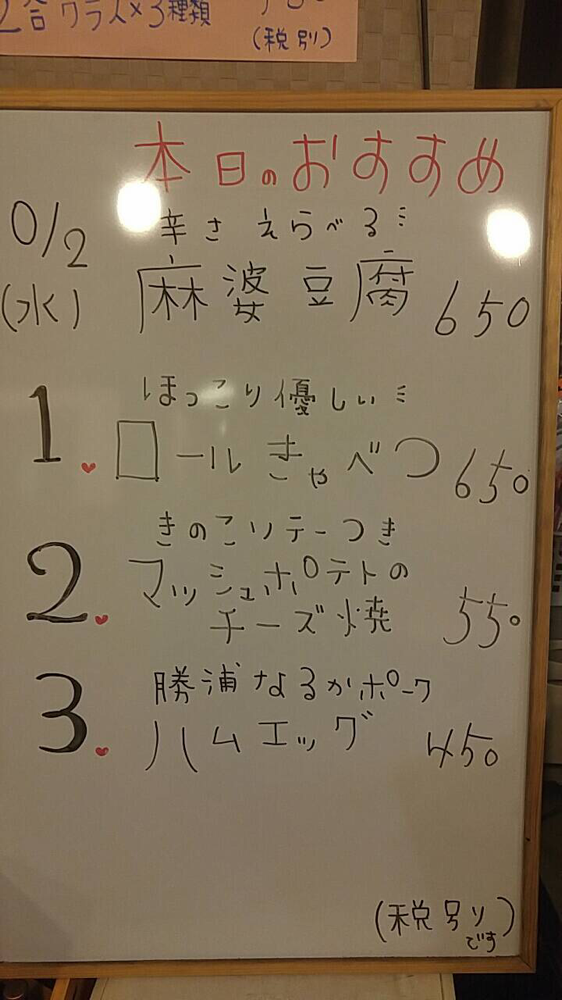 2合 グラス×3種類
(税別)
本日のおすすめ
0/2
(水)
辛さえらべる⋮
麻婆豆腐 650
1. ほっこり優しい⋮
ロールきゃべつ 650
2. きのこソテーつき
マッシュポテトの
チーズ焼 550
3. 勝浦なるかポーク
ハムエッグ 450
(税別り)
です